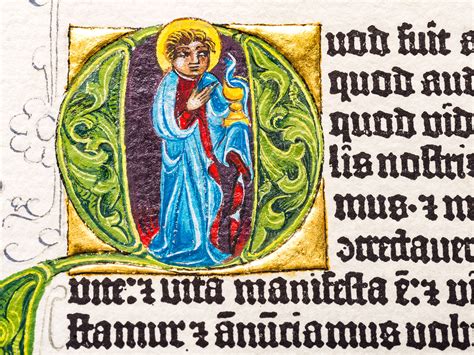 Quod fuit a
quod aud
quod vid
lis nostri
mus· ⁊ m
ↄtrectaver
vite: ⁊ vita manifesta ē: ⁊ vi
stamur ⁊ ānūciamus vob